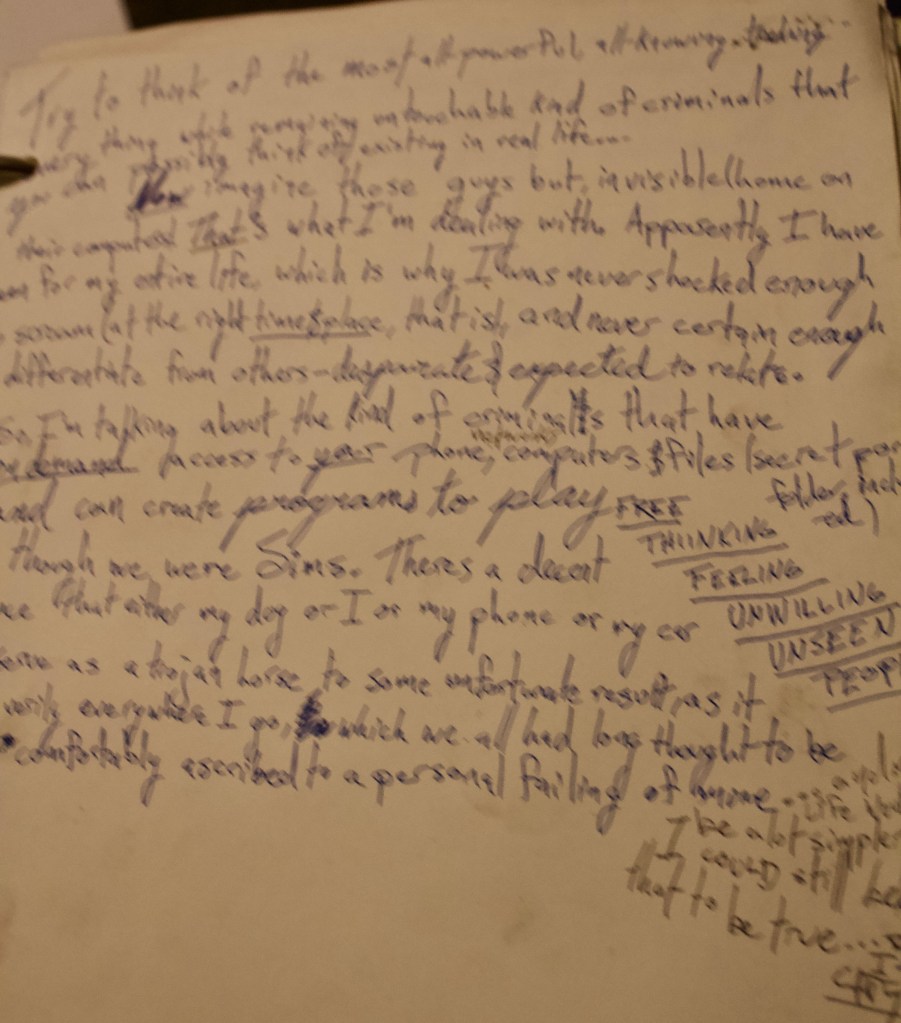 Try to think of the most all-powerful all-knowing
thing while remaining untouchable kind of criminals that
you can possibly think of existing in real life...
imagine those guys but, invisible/home on
their computers! That's what I'm dealing with. Apparently I have
for my entire life, which is why I was never shocked enough
scream (at the right time & place, that is), and never certain enough
differentiate from others- & expected to relate.
So, I'm talking about the kind of criminals that have
demand access to your phone, computers & files (secret
folder, incl
ed)
and can create programs to play FREE
THIINKING
FEELING
UNWILLING
UNSEEN
though we were Sims. Theres a decent
that either my dog or I or my phone or my car
as a trojan horse to some unfortunate result, as it
everywhere I go, which we all had long thought to be
comfortably ascribed to a personal failing of mine... Life
I be a lot simpler
I COULD still
that to be true...